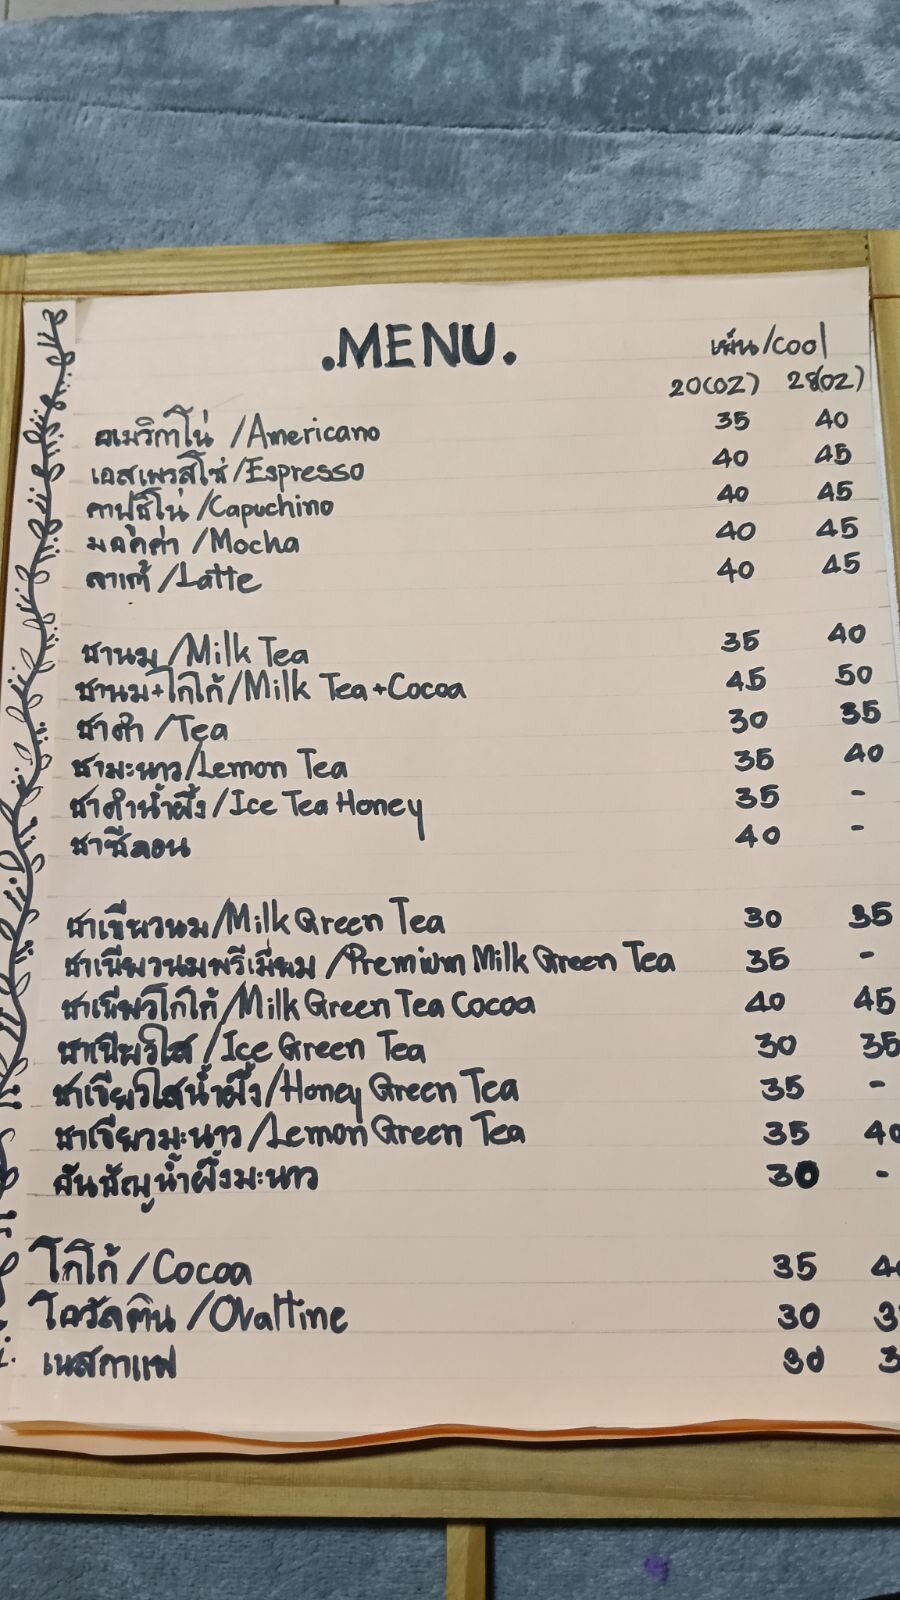 .MENU.
เย็น/cool
20(OZ) 28(OZ)
อเมริกาโน่ /Americano 35 40
เอสเพรสโซ่/Espresso 40 45
คาปูชิโน่ /Capuchino 40 45
มอคค่า /Mocha 40 45
ลาเต้ /Latte 40 45
ชานม /Milk Tea 35 40
ชานม+โกโก้/Milk Tea+Cocoa 45 50
ชาดำ /Tea 30 35
ชามะนาว/Lemon Tea 35 40
ชาดำน้ำผึ้ง/Ice Tea Honey 35 -
ชาซีลอน 40 -
ชาเขียวนม/Milk Green Tea 30 35
ชาเขียวนมพรีเมี่ยม /Premium Milk Green Tea 35 -
ชาเขียวโกโก้/Milk Green Tea Cocoa 40 45
ชาเขียวใส /Ice Green Tea 30 35
ชาเขียวใสน้ำผึ้ง/Honey Green Tea 35 -
ชาเขียวมะนาว /Lemon Green Tea 35 40
อันชัญน้ำผึ้งมะนาว 30 -
โกโก้ /Cocoa 35
โอวัลติน /Ovaltine 30
เนสกาแฟ 30